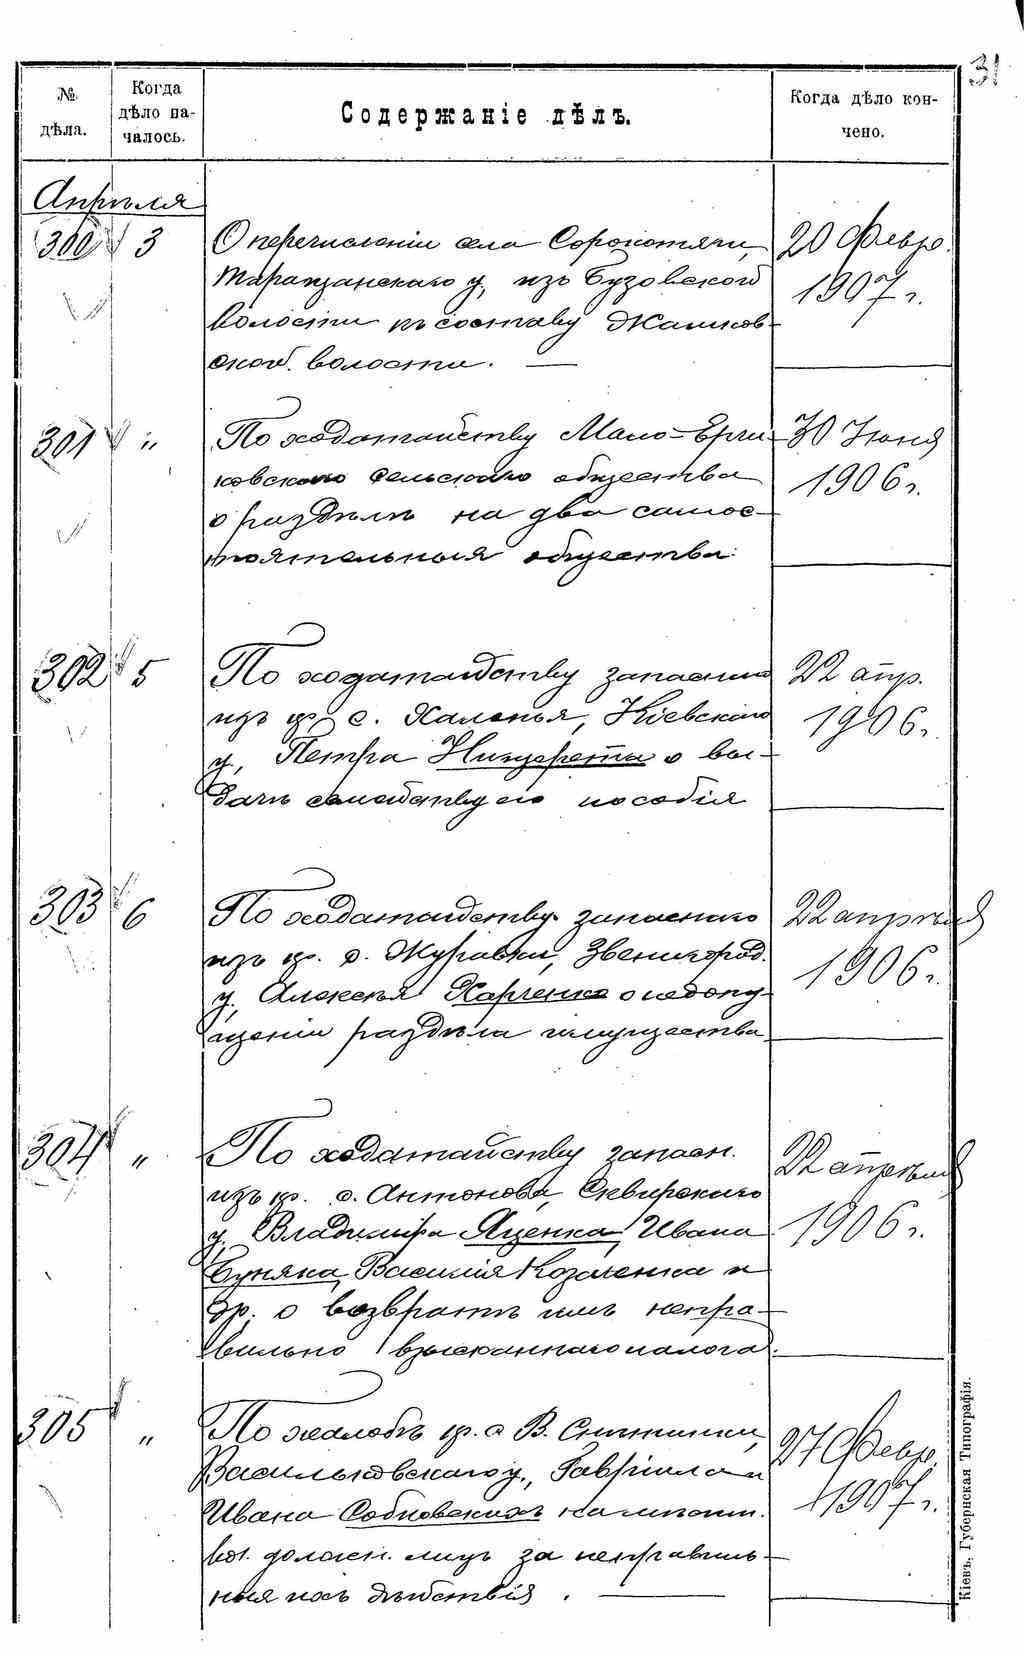 31
№ дѣла.
Когда дѣло началось.
Содержаніе дѣлъ.
Когда дѣло кончено.
Апрѣля
300 3 О перечисленіи села Сорокотяги, 20 Февр.
Таращанскаго у, изъ Бузовской 1907 г.
волости въ составъ Жашков-
ской волости. —
301 " По ходатайству Мало-Ерчи- 30 Іюня
ковскаго сельскаго общества 1906 г.
о раздѣлѣ на два самос-
тоятельныя общества.
302 5 По ходатайству запаснаго 22 апр.
изъ кр. с. Халепья, Кіевскаго 1906 г.
у, Петра о вы-
дачѣ семейству его пособія
303 6 По ходатайству запаснаго 22 апрѣля
изъ кр. с. Журавки, Звенигород. 1906 г.
у, Алексѣя Харченко о недопу-
щеніи раздѣла имущества
304 " По ходатайству запасн. 22 апрѣля
изъ кр. с. Антонова, Сквирскаго 1906 г.
у, Владиміра Яценка, Ивана
Буняка, Василія Козаченка и
др. о возвратѣ имъ непра-
вильно взысканнаго налога.
305 " По жалобѣ кр. с В. Снитинки, 27 Февр.
Васильковскаго у., Гавріила и 1907 г.
Ивана на мѣстн.
вол. должн. лицъ за неправиль-
ныя ихъ дѣйствія. —
Кіевъ, Губернская Типографія.